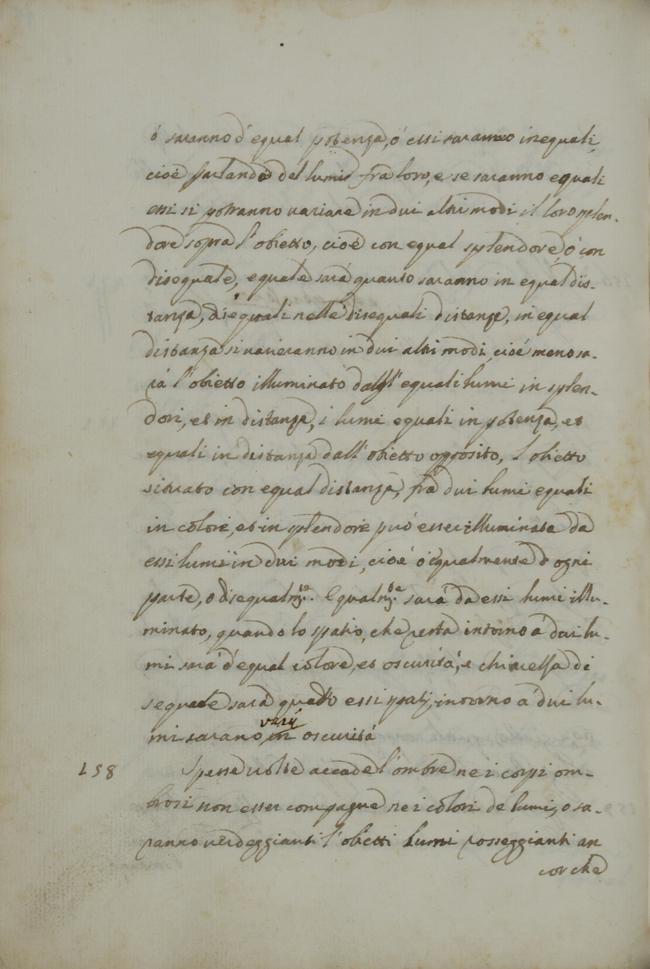 ó saranno d'equal potenza, ó essi saranno inequali,
cioé parlando del lumi fra loro, e se saranno equali
essi si potranno variare in dui altri modi il loro splen-
dore sopra l'obietto, cioé con equal splendore, ó con
disequale, equale sará quanto saranno in equal dis-
tanza, disequali nelle disequali distanze, in equal
distanza si varieranno in dui altri modi, cioé meno sa-
rá l'obietto illuminato dagl'equali lumi in splen-
dori, et in distanza, i lumi equali in potenza, et
equali in distanza dall'obietto opposito, l'obietto
situato con equal distanza, fra dui lumi equali
in colore, et in splendore puó esser illuminata da
essi lumi in dui modi, cioé ó equalmente d'ogni
parte, o disequalm.te. Equalm.te sará da essi lumi illu-
minato, quando lo spatio, che resta intorno á dui lu-
mi sará d'equal colore, et oscuritá, e chiarezza di
sequale sará quando essi spatij, intorno á dui lu-
mi sarano varij in oscuritá
158 Spesse volte accade l'ombre nei corpi om-
brosi non esser compagne nei colori de lumi, o sa-
ranno verdeggianti l'obietti lumi rosseggianti an
corche